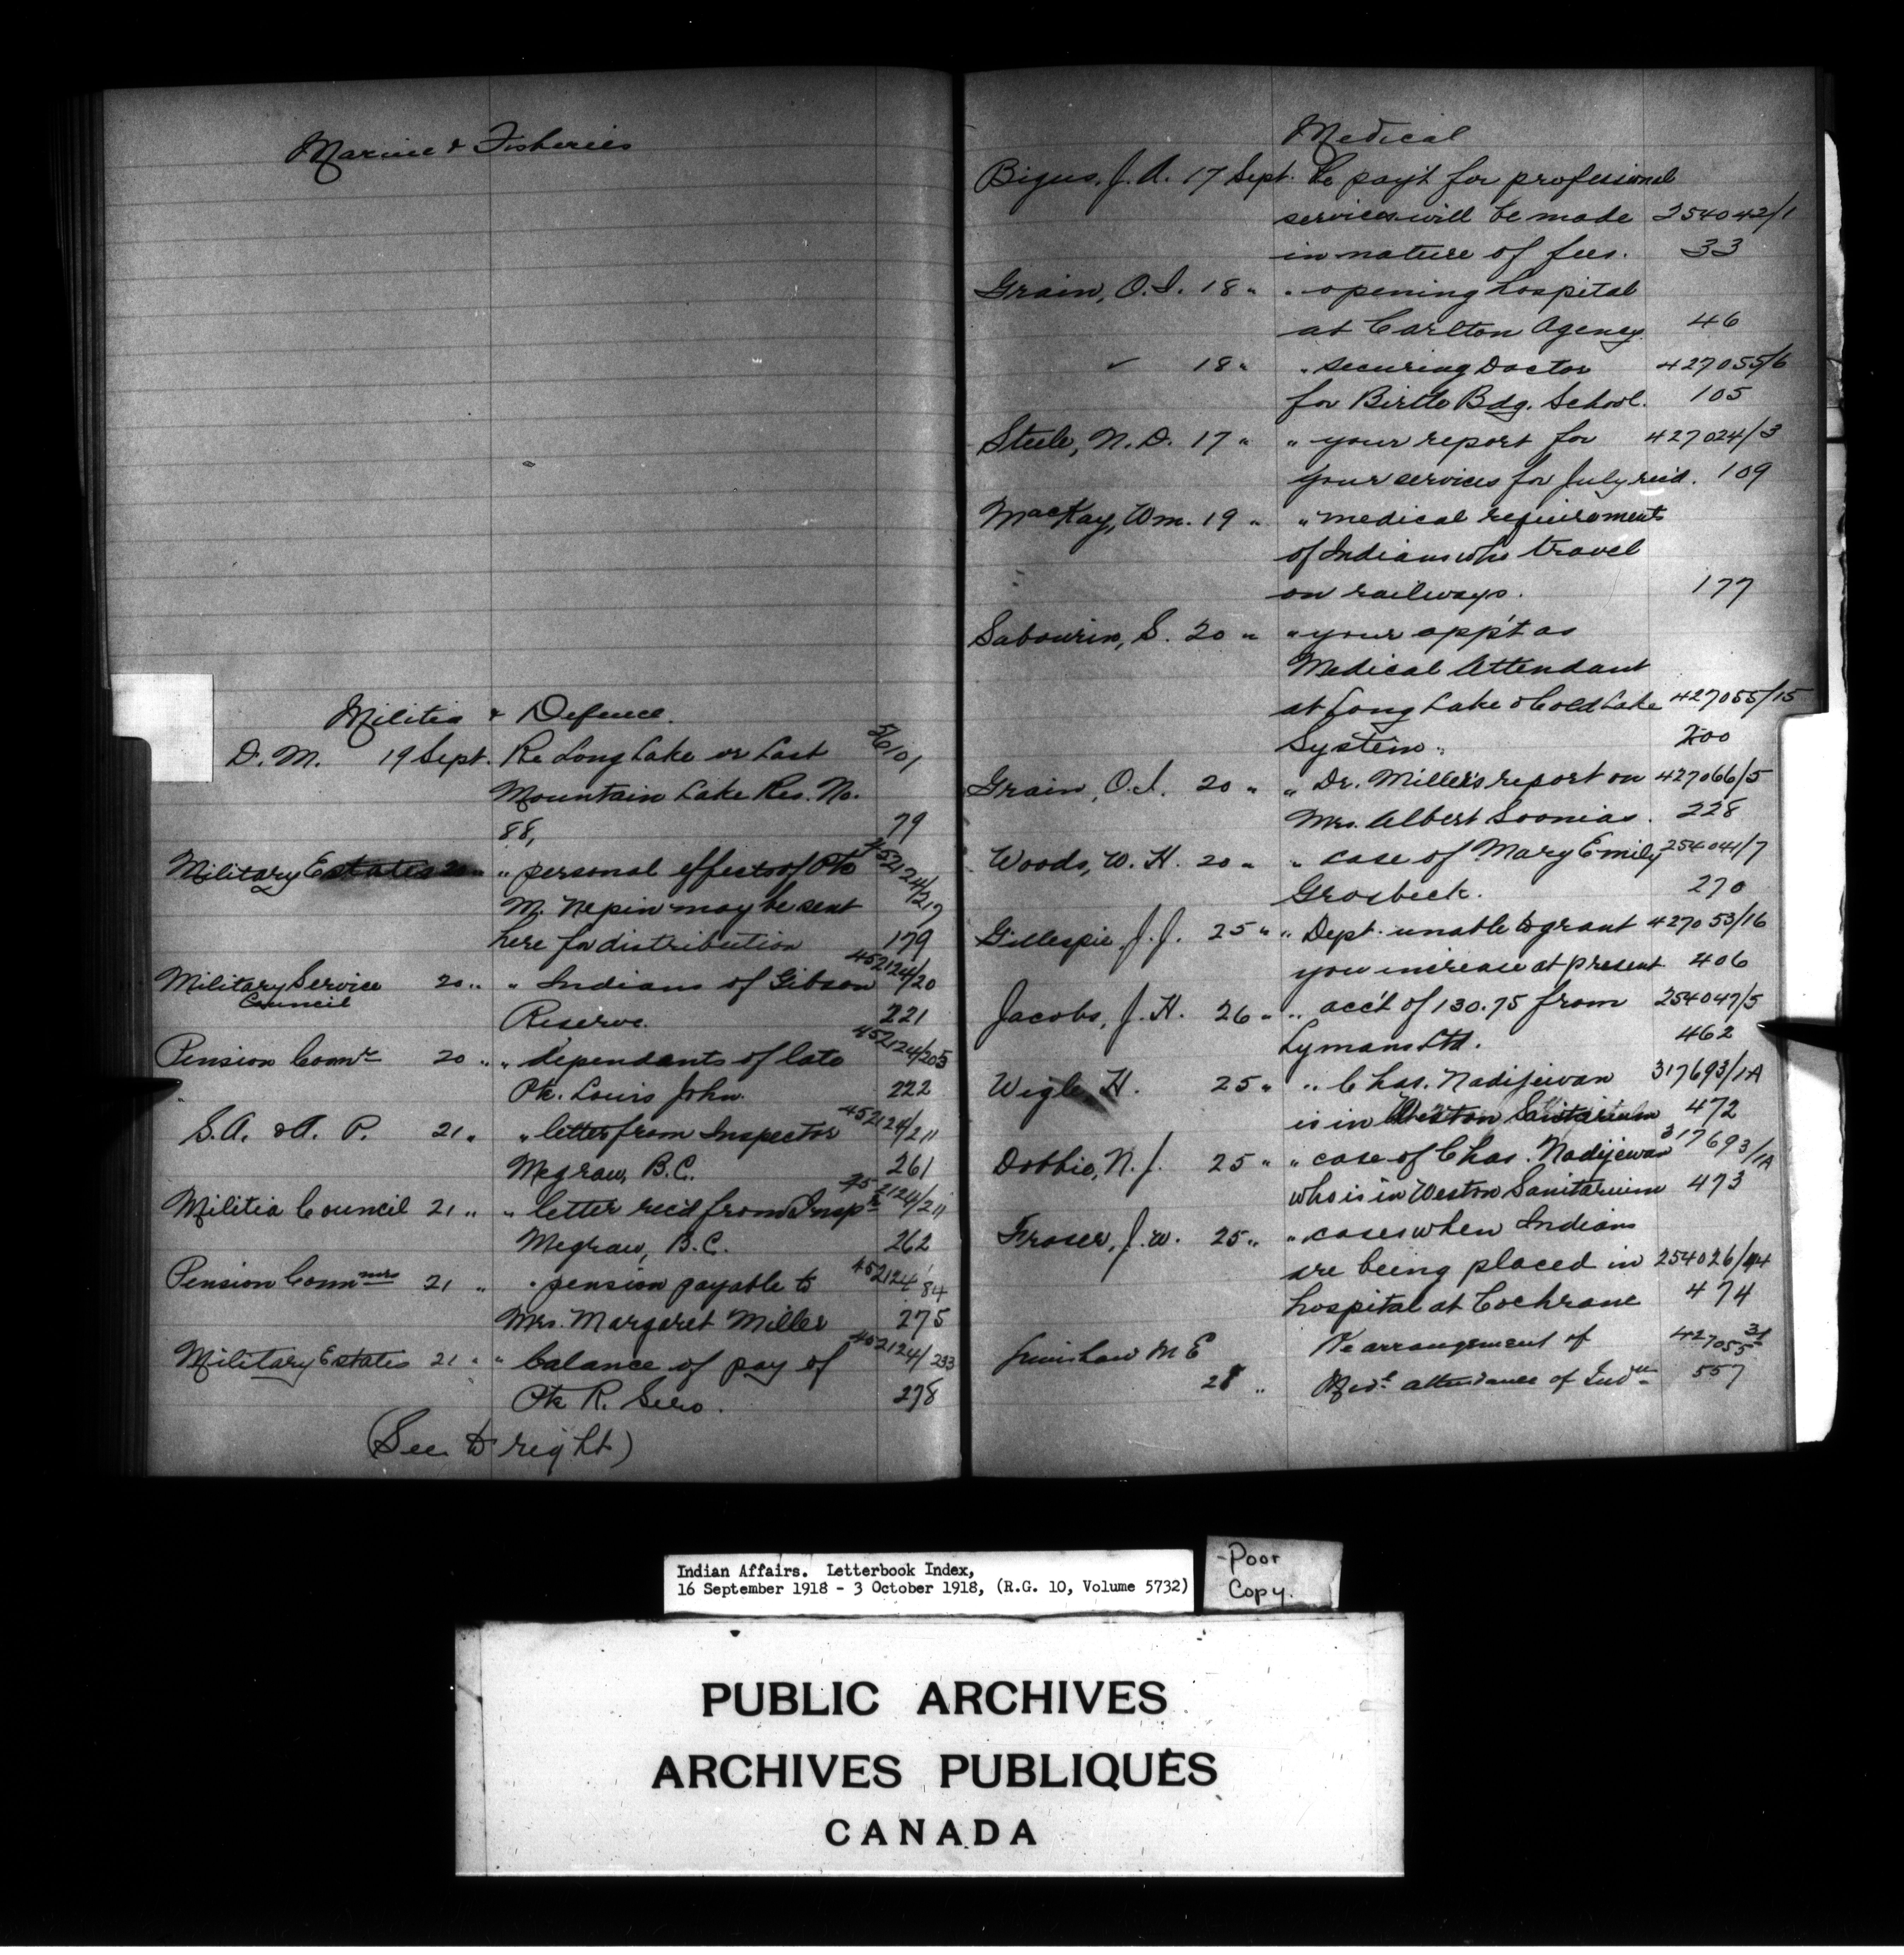 Marine & Fisheries
Militia & Defence.
D. M. 19 Sept. Re Long Lake or Last
Mountain Lake Res. No.
88, 79
Military Estates 20 " " personal effects of Pte 452124/217
M. Nepin may be sent
here for distribution 179
Military Service Council 20 " " Indians of Gibson 452124/20
Reserve. 221
Pension Comr 20 " " dependants of late 452124/205
Pte. Louis John. 222
S.A. & A. P. 21 " " letter from Inspector 452124/211
Megraw, B.C. 261
Militia Council 21 " " letter rec'd from Inspr 452124/211
Megraw, B.C. 262
Pension Commrs 21 " " pension payable to 452124/84
Mrs. Margaret Miller 275
Military Estates 21 " " balance of pay of 452124/233
Pte R. Sero. 278
(See to right)
Medical
Bigus, J. A. 17 Sept. Re pay't for professional
services will be made 254042/1
in nature of fees. 33
Grain, O. I. 18 " " opening hospital
at Carlton Agency. 46
✓ 18 " " securing Doctor 427055/6
for Birtle Bdg. School. 105
Steele, N. D. 17 " " your report for 427024/3
your services for July rec'd. 109
MacKay, Wm. 19 " " medical requirements
of Indians who travel
on railways. 177
Sabourin, S. 20 " " your app't as
Medical Attendant
at Long Lake & Cold Lake 427055/15
System. 200
Grain, O. I. 20 " " Dr. Miller's report on 427066/5
Mrs. Albert Soonias. 228
Woods, W. H. 20 " " case of Mary Emily 254041/7
Grosbeck. 270
Gillespie, J. J. 25 " " Dept. unable to grant 427053/16
you increase at present 406
Jacobs, J. H. 26 " " acc't of 130.75 from 254047/5
Lymans Ltd. 462
Wigle, H. 25 " " Chas. Nadijewan 317693/1A
is in Weston Sanitarium 472
Dobbie, N. J. 25 " " case of Chas. Nadijewan 317693/1A
who is in Weston Sanitarium 473
Fraser, J. W. 25 " " cases when Indians
are being placed in 254026/
hospital at Cochrane 474
M E Re arrangement of 427055
28 " Medl attendance of Indns 557
Indian Affairs. Letterbook Index,
16 September 1918 - 3 October 1918, (R.G. 10, Volume 5732)
-Poor
Copy.
PUBLIC ARCHIVES
ARCHIVES PUBLIQUES
CANADA